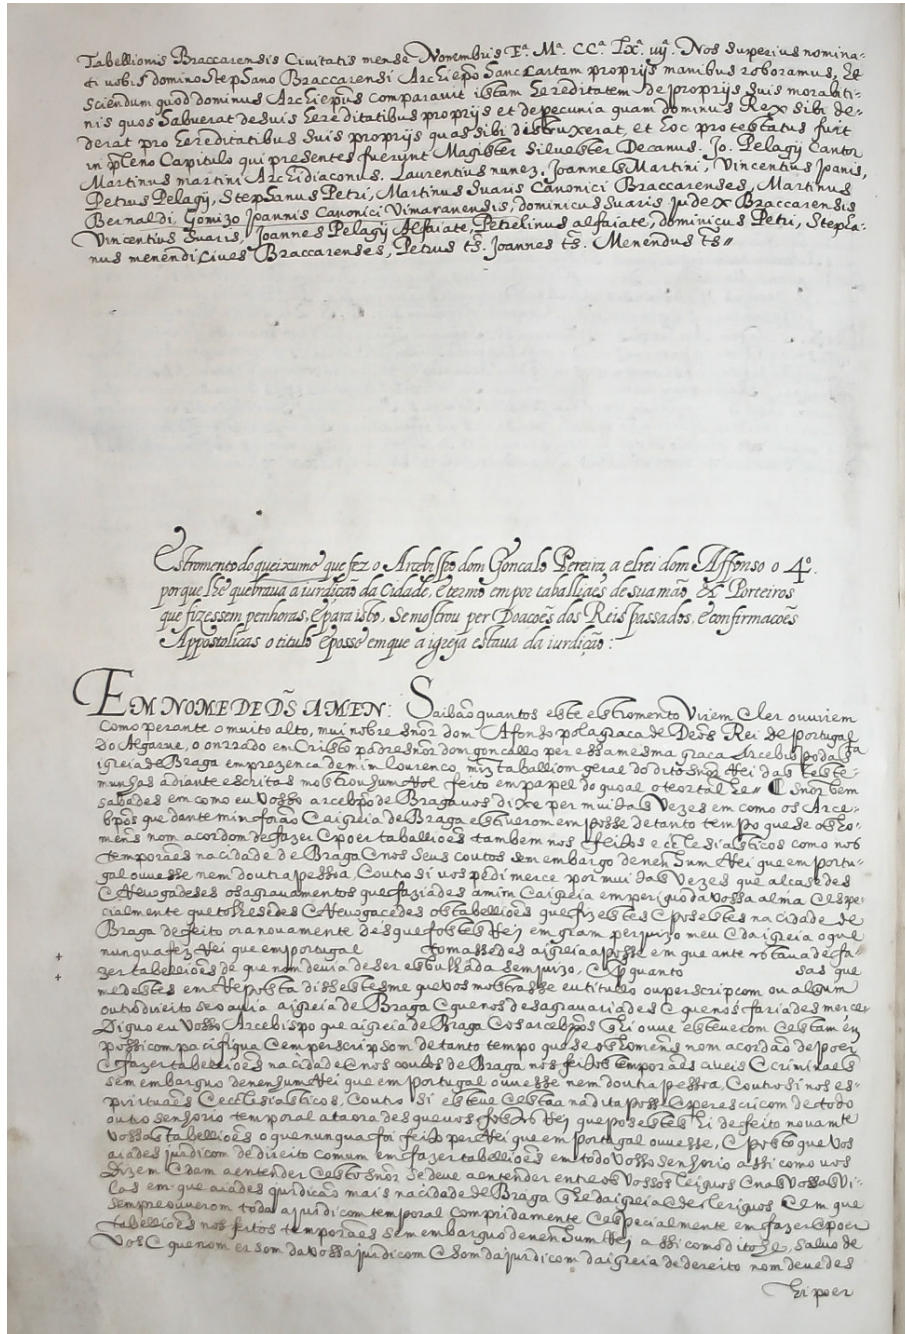 Tabellionis Braccarensis Civitatis mense Novembris Eª. Mª. CCª. Lxª. iiij. Nos superius nomina-
ti vobis domino Stephano Braccarensi Archiepo hanc cartam proprijs manibus roboramus, et
sciendum quod dominus Archiepus comparavit istam hereditatem de proprijs suis morabiti-
nis quos habuerat de suis hereditatibus proprijs et de pecunia quam dominus Rex sibi de-
derat pro hereditatibus suis proprijs quas sibi distruxerat, et hoc protestatus fuit
in pleno Capitulo qui presentes fuerunt Magister Silvester Decanus. Jo. Pelagij Cantor
Martinus martini Archidiaconus. Laurentius nunez. Joannes Martini, Vincentius Joanis,
Petrus Pelagij, Stephanus Petri, Martinus Suaris Canonici Braccarenses, Martinus
Bernaldi, Gomizo Joannis Canonici Vimaranensis, dominicus Suaris Judex Braccarensis
Vincentius Suaris, Joannes Pelagij Alfaiate, Petrelinus alfaiate, dominicus Petri, Stepha-
nus menendi cives Braccarenses, Petrus ts. Joannes ts. Menendus ts //
Estromento do queixume que fez o Arcebispo dom Goncalo Pereira a elrei dom Affonso o 4º.
porque lhe quebrava a iurdição da Cidade, e termo em por taballiães de sua mão & Porteiros
que fizessem penhoras, e para isto, se mostrou per Doações dos Reis passados, e confirmacoẽs
Appostolicas o titulo e posse em que a igreja estava da iurdição :
EM NOME DE DS AMEN : Saibão quantos este estromento virem e ler ouvirem
como perante o muito alto, mui nobre snõr dom Afonso pola graca de Deos Rei de portugal
do Algarve, o onrrado em Cristo padre snõr dom goncallo per essa mesma graca Arcebispo da Sta
igreia de Braga em prezenca de mim lourenco miz taballiom geral do dito snõr Rei das teste-
munhas adiante escritas mostrou hum Rol feito em papel do quoal o teor tal he // snõr bem
sabedes em como eu vosso arcebpo de Braga vos dixe per muidas vezes em como os Arce-
bpos que dante mim forão e a igreia de Braga estiverom em posse de tanto tempo que se os ho-
mens nom acordom de fazer e poer taballiões tambem nos feitos ecclesiasticos como nos
temporaes na cidade de Braga e nos seus coutos sem embargo de nenhum Rei que em portu-
gal ouvesse nem doutra pessoa, e outro si vos pedi merce por muidas vezes que alcasedes
e Revogadeses os agravamentos que faziades a mim e a igreia em periguo da vossa alma e espe-
cialmente que tolhesedes e Revogacedes os tabelliões que fizestes e posestes na cidade de
Braga de feito ora novamente des que fostes Rej em gram perjuizo meu e da igreia o que
nunqua fez Rei que em portugal tomassedes a igreia a posse em que ante vos estava de fa-
zer tabelliões de que nom devia de ser esbulhada sem juizo, e por quanto sas que
me destes em Reposta dissestes me que vos mostrasse eu titulo ou perscripcom ou algum
outro direito se o avia a igreia de Braga e que nos desagravariades e que nos fariades merce
Diguo eu vosso Arcebispo que a igreia de Braga e os arcebpos hi ouve esteve com e estam em
possi com pacifigua e em perscripsom de tanto tempo que se os homens nom acordão de poer
e fazer tabelliões na cidade e nos coutos de Braga nos feitos temporaes civeis e criminaes
sem embarguo de nenhum Rei que em portugal ouvesse nem doutra pessoa, e outro si nos es-
pirtuaes e ecclesiasticos, e outro si esteve e esta na dita posse e prescricom de todo
outro senhorio temporal ata ora des que vos fostes Rej que posestes hi de feito novamte
vossos tabelliões o que nunqua foi feito per Rei que em portugal ouvesse, e posto que vos
aiades jurdicom de direito comum em fazer tabelliões em todo vosso senhorio assi como vos
dizem e dam a entender e esto snõr se deve a entender entre os vossos leiguos e nas vossas vi-
las em que aiades jurdicão mais na cidade de Braga que he da igreia e de clerigos e em que
sempre ouverom toda a jurdicom temporal compridamente e especialmente em fazer e poer
tabelliões nos feitos temporaes sem embarguo de nenhum Rei assi como dito he, salvo de
Vos e que nom er som da vossa jurdicom e som da jurdicom da igreia de dereito nom devedes
hi poer